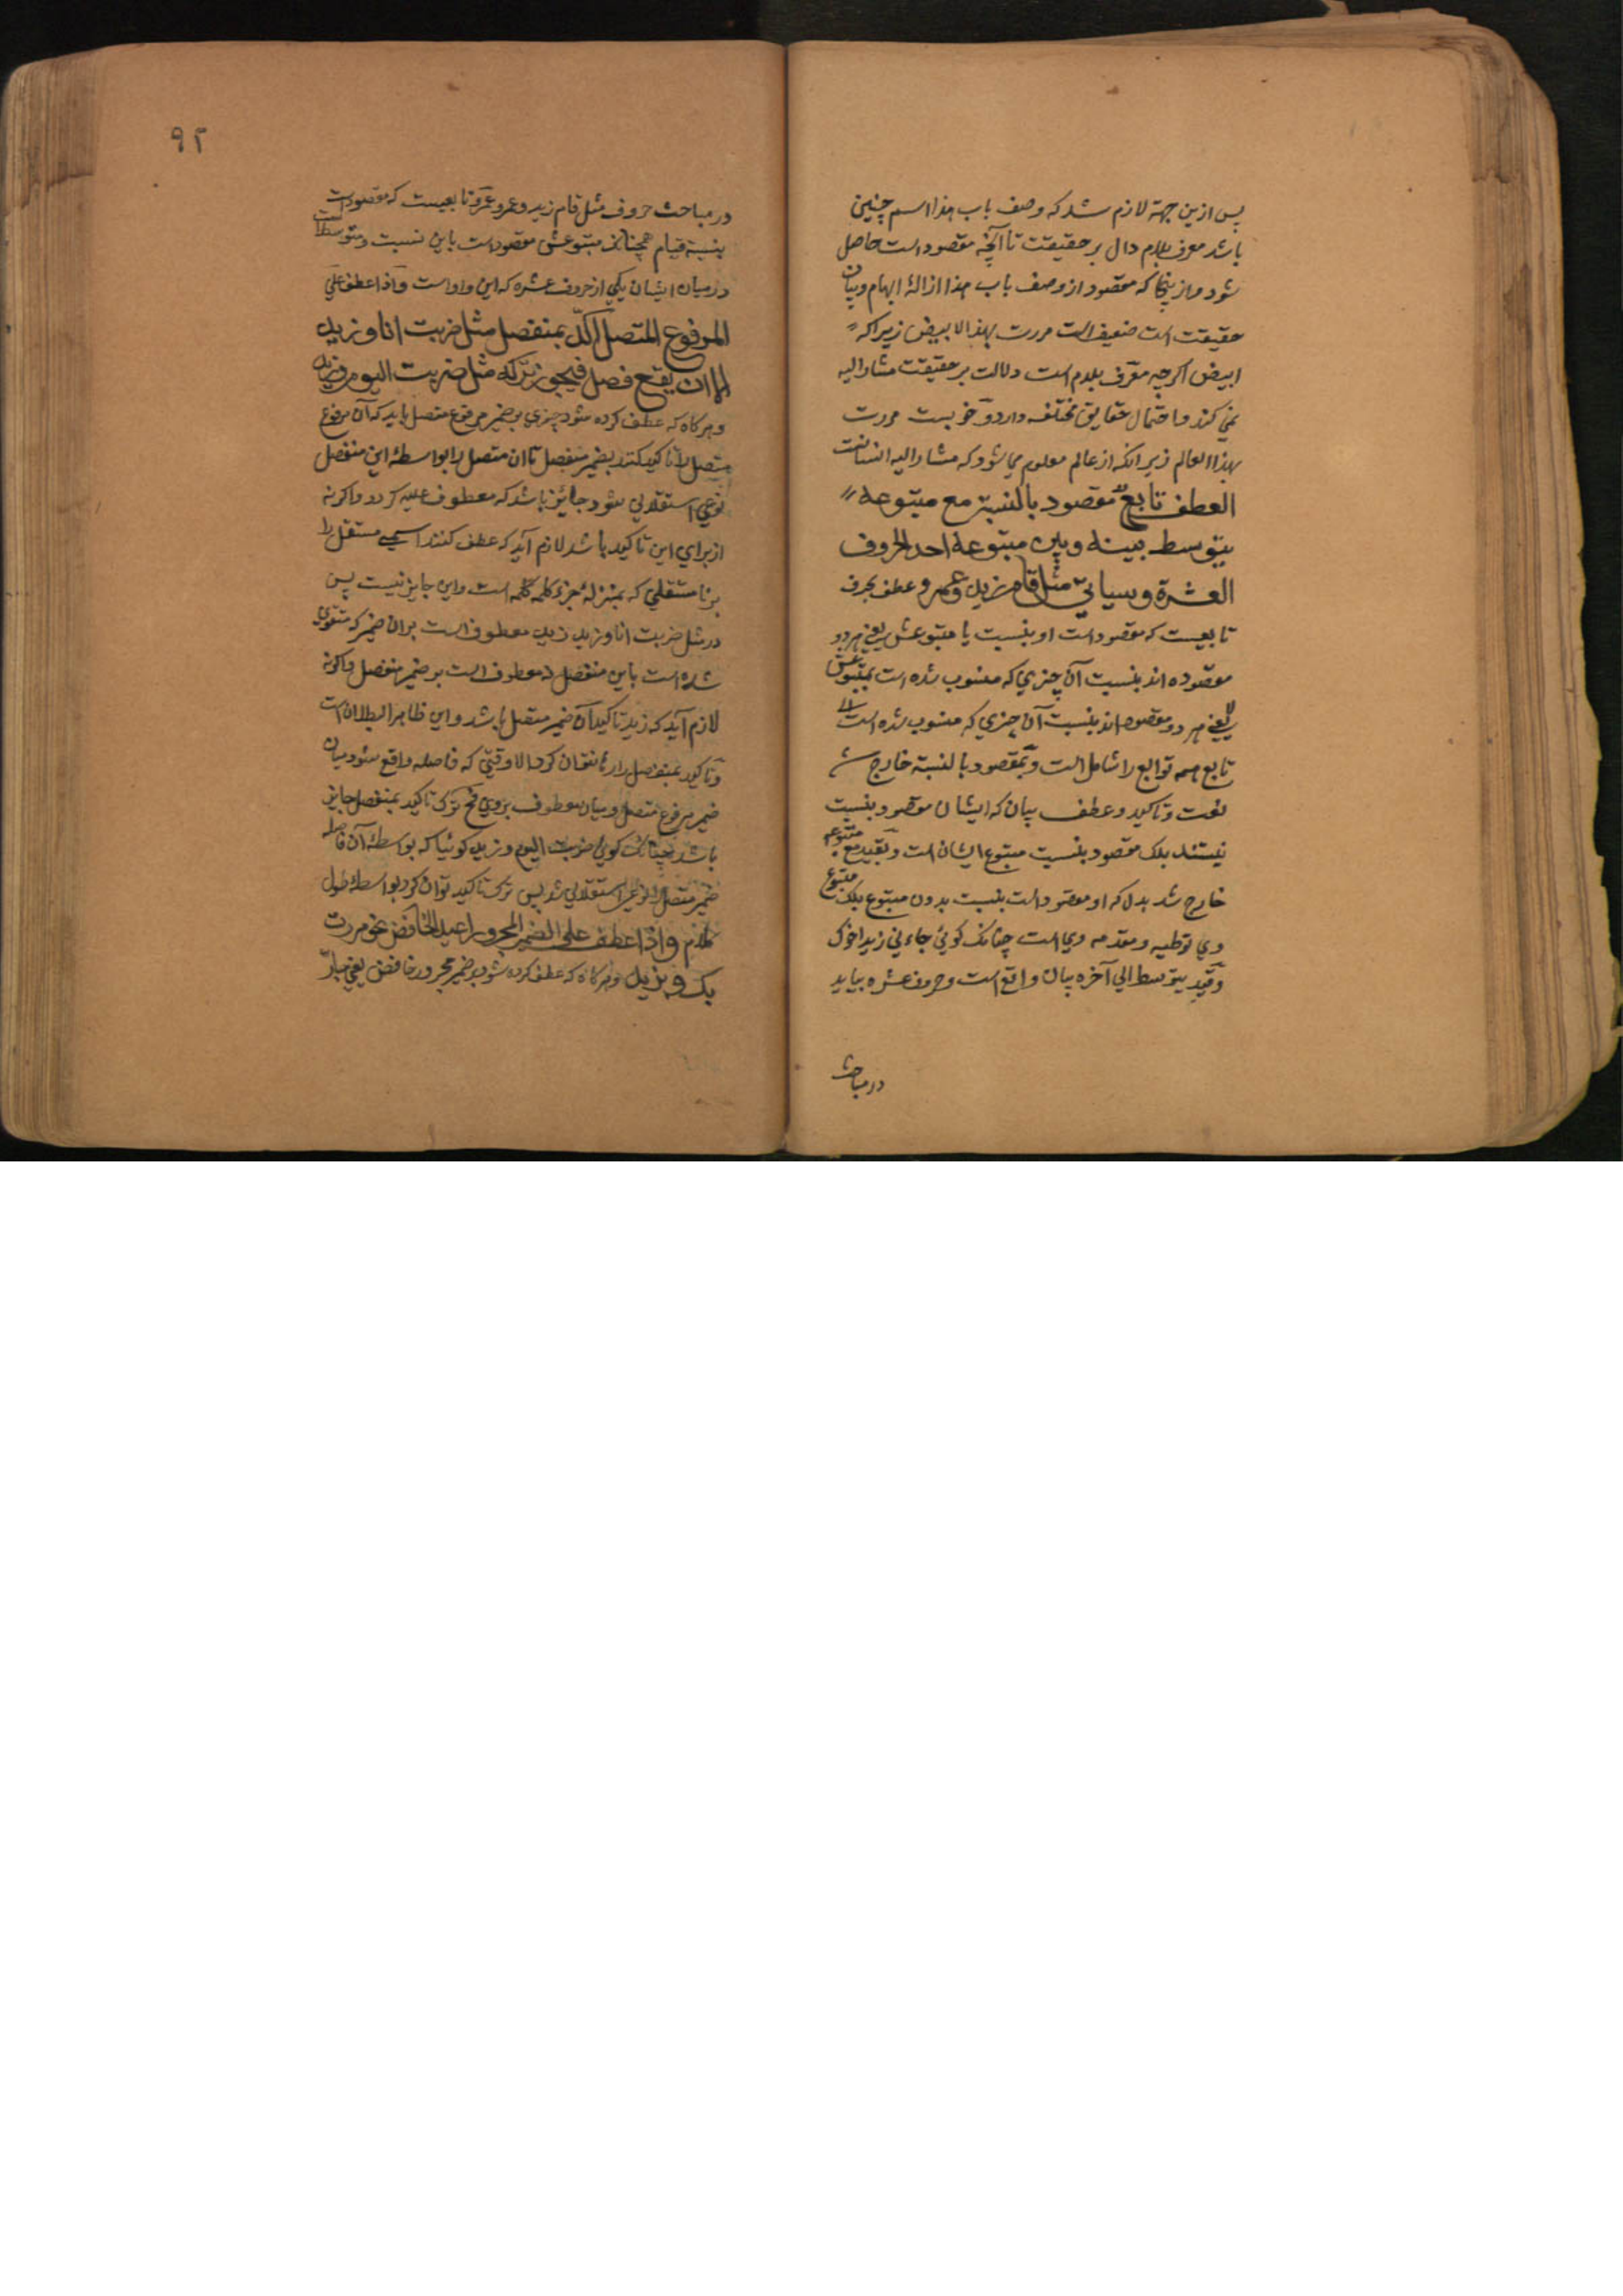 پس ازین جهة لازم شد که وصف باب هذا اسم چنین
باشد معرف بلام دال بر حقیقت تا آنچه مقصود است حاصل
شود و از ینجا که مقصود از وصف باب هذا ازالۀ ابهام و بیان
حقیقت است ضعیف است مررت بهذا الابیض زیرا که
ابیض اگرچه معرف بلام است دلالت بر حقیقت مشار الیه
نمی کند و احتمال حقایق مختلفه دارد و خوبست مررت
بهذا العالم زیرا که از عالم معلوم می شود که مشار الیه انسانست
العطف تابع مقصود بالنسبة مع متبوعه
یتوسط بینه وبین متبوعه احد الحروف
العشرة وسیاتی مثل قام زید وعمرو عطف بحرف
تابعیست که مقصود است او بنسبت با متبوعش یعنی هر دو
مقصوده اند بنسبت آن چیزی که منسوب شده است بمتبوعش
یعنی هر دو مقصود اند بنسبت آن چیزی که منسوب شده است
تابع همه توابع را شامل است و بمقصود بالنسبة خارج شد
نعت و تاکید و عطف بیان که ایشان مقصود بنسبت
نیستند بلک مقصود بنسبت متبوع ایشان است و بقید مع متبوعه
خارج شد بدل که او مقصود است بنسبت بدون متبوع بلک متبوع
وی توطیه و مقدمه وی است چنانک کوئی جاءنی زید اخوک
و قید یتوسط الی آخره بیان واقع است و حروف عشره بیاید
در مباحث
۹۲
در مباحث حروف مثل قام زید و عمرو عمرو تابعیست که مقصود است
بنسبة قیام همچنانک متبوعش مقصود است باین نسبت و متوسط است
در میان ایشان یکی از حروف عشره که این واو است و اذا عطف علی
المرفوع المتصل اکد بمنفصل مثل ضربت انا وزید
الا ان یقع فصل فیجوز ترکه مثل ضربت الیوم وزید
و هر گاه که عطف کرده شود چیزی بر ضمیر مرفوع متصل باید که آن مرفوع
متصل را تاکید کنند بضمیر منفصل تا ان متصل را بواسطۀ این منفصل
نوعی استقلالی شود جائز باشد که معطوف علیه کردد و اکر نه
از برای این تاکید باشد لازم آید که عطف کنند اسمی مستقل را
بر نا مستقلی که بمنزلۀ جزء کلمه است و این جایز نیست پس
در مثل ضربت انا وزید زید معطوف است بران ضمیر که متقوی
شده است باین منفصل نه معطوف است بر ضمیر منفصل و اکر نه
لازم آید که زید تاکید آن ضمیر متصل باشد و این ظاهر البطلان است
و تاکید بمنفصل را رها نتوان کرد الا وقتی که فاصله واقع شود میان
ضمیر مرفوع متصل و میان معطوف بر وی که ترک تاکید بمنفصل جایز
باشد چنانک کوئی ضربت الیوم وزید کوئیا که بواسطۀ آن فاصله
ضمیر متصل را نوعی استقلالی شد پس ترک تاکید توان کرد بواسطۀ طول
کلام واذا عطف علی الضمیر المجرور اعید الخافض نحو مررت
بک وبزید و هر گاه که عطف کرده شود بر ضمیر مجرور خافض یعنی جار